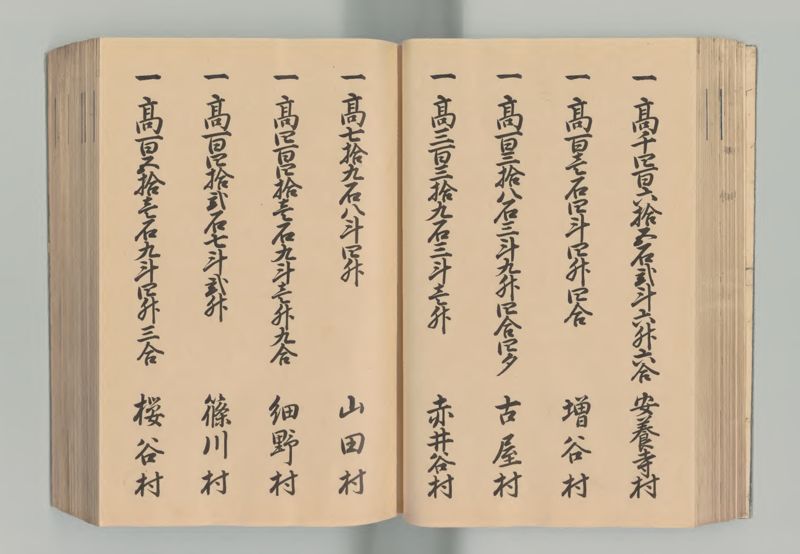 一 高千四百六拾五石弐斗六升六合 安養寺村
一 高百壱石四斗四升四合 増谷村
一 高百三拾八石三斗九升四合四夕 古屋村
一 高三百三拾九石三斗壱升 赤井谷村
一 高七拾九石八斗四升 山田村
一 高四百四拾壱石九斗壱升九合 細野村
一 高百四拾弐石七斗弐升 篠川村
一 高百五拾壱石九斗四升三合 桜谷村